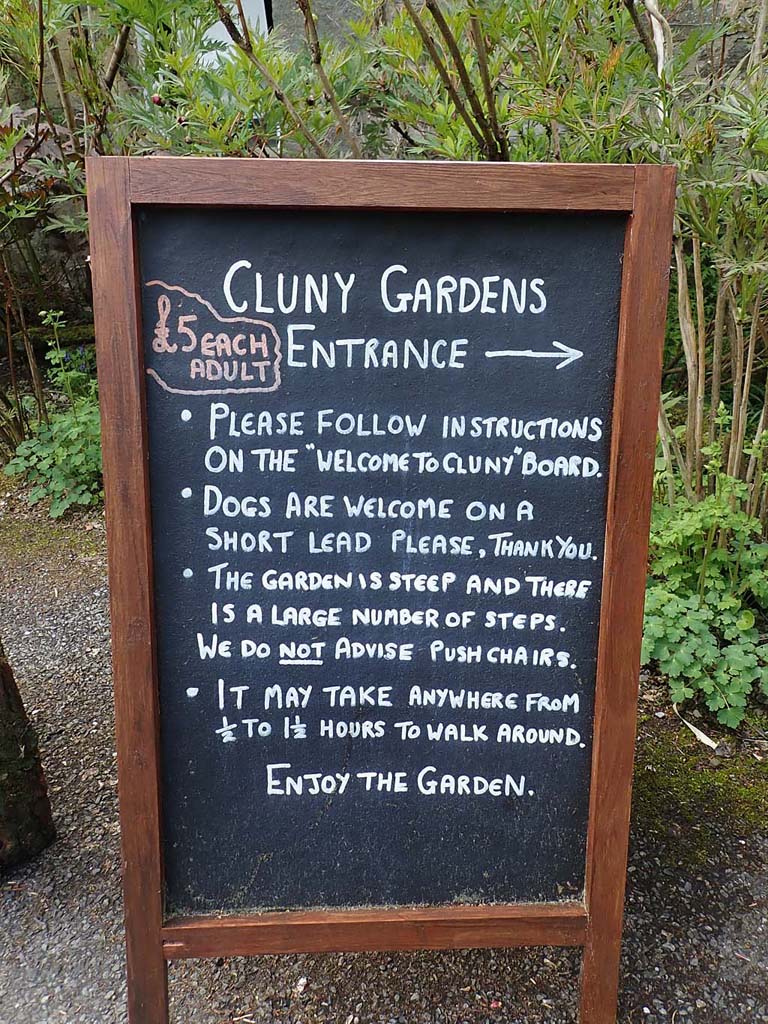 CLUNY GARDENS
£5 EACH
ADULT
ENTRANCE →
• PLEASE FOLLOW INSTRUCTIONS
ON THE "WELCOME TO CLUNY" BOARD.
• DOGS ARE WELCOME ON A
SHORT LEAD PLEASE, THANK YOU.
• THE GARDEN IS STEEP AND THERE
IS A LARGE NUMBER OF STEPS.
WE DO NOT ADVISE PUSH CHAIRS.
• IT MAY TAKE ANYWHERE FROM
½ TO 1½ HOURS TO WALK AROUND.
ENJOY THE GARDEN.